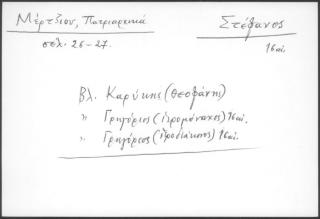 Μέρτζιου, Πατριαρχικά
Στέφανος
σελ. 26-27.
16αι.
Βλ. Καρύκης (Θεοφάνης)
" Γρηγόριος (ἱερομόναχος) 16αι.
" Γρηγόριος (ἱεροδιάκονος) 16αι.